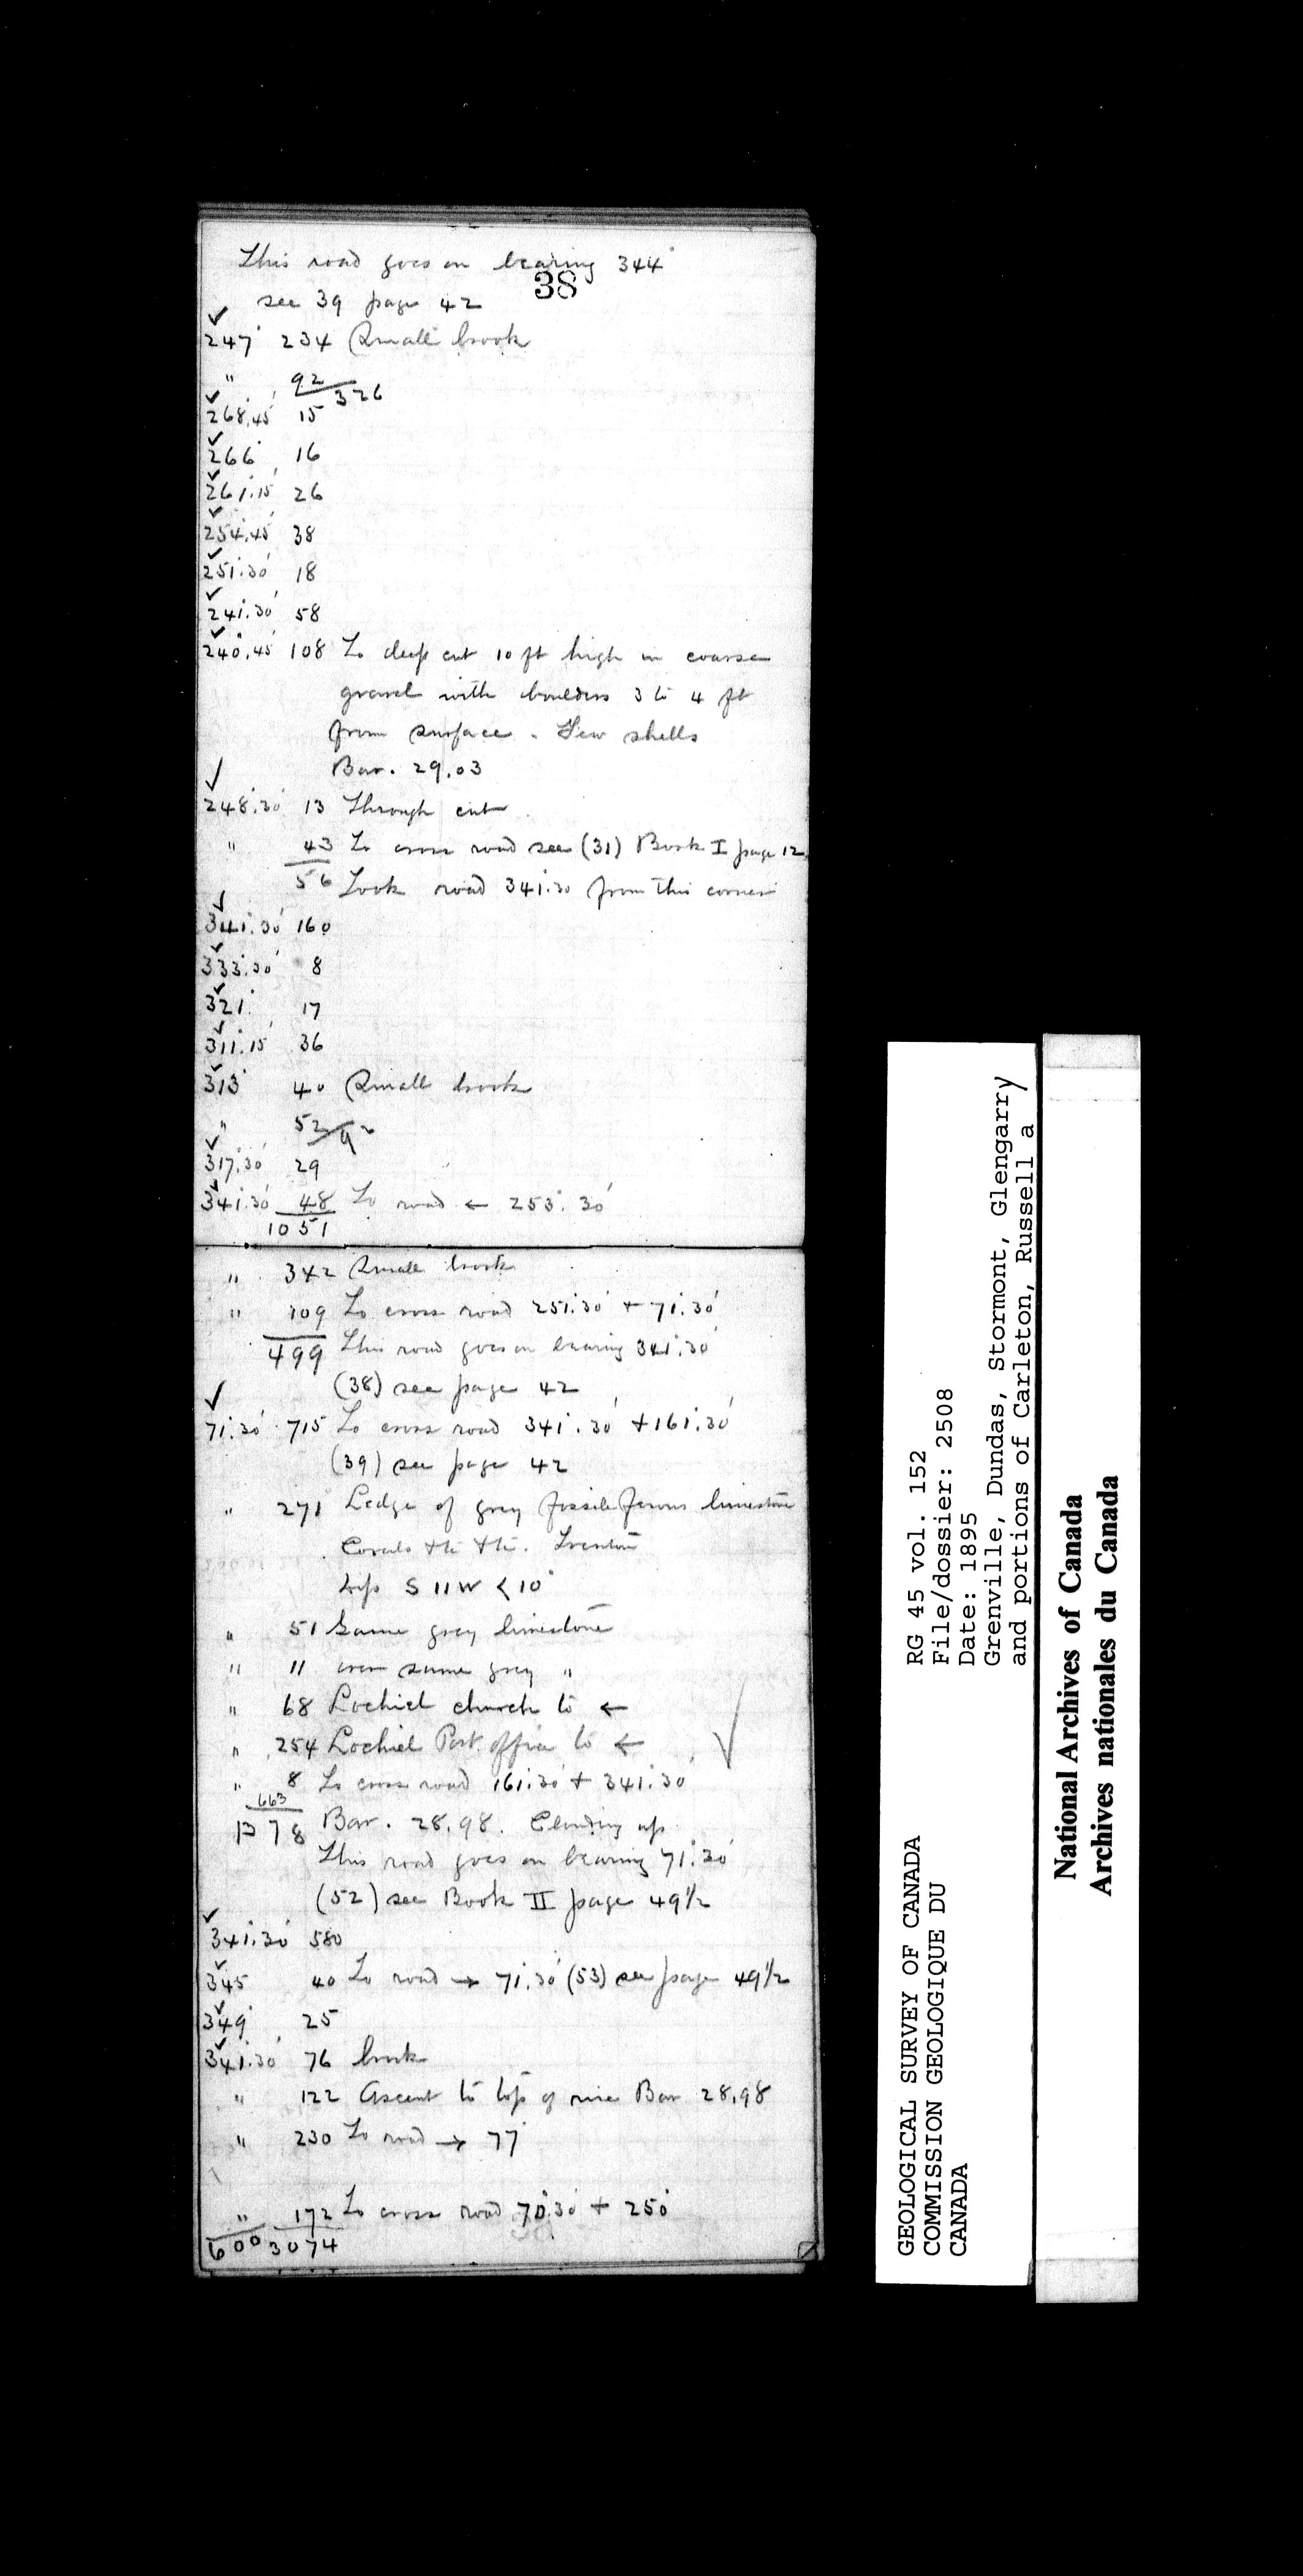 This road goes on bearing 344°
38
see 39 page 42
✓
247° 234 Small brook
" 92 326
✓ 268°.45' 15
✓ 266° 16
✓ 261°.15' 26
✓ 254°.45' 38
✓ 251°.30' 18
✓ 241°.30' 58
✓ 240°.45' 108 To deep cut 10 ft high in coarse
gravel with boulders 3 to 4 ft
from surface. Few shells
Bar. 29.03
✓ 248°.30' 13 Through cut
" 43 To cross road see (31) Book I page 12
56 Took road 341°.30 from this corner
✓ 341°.30' 160
✓ 333°.30' 8
✓ 321° 17
✓ 311°.15' 36
✓ 313° 40 Small brook
" 52 92
✓ 317°.30' 29
✓ 341°.30' 48 To road ← 253°.30'
1051
" 342 Small brook
" 109 To cross road 251°.30' + 71°.30'
499 This road goes on bearing 341°.30'
(38) see page 42
✓ 71°.30' 715 To cross road 341°.30' + 161°.30'
(39) see page 42
" 271 Ledge of grey fossiliferous limestone
Corals &c &c. Trenton
Dip S 11 W < 10°
" 51 Same grey limestone
" 11 over same grey "
" 68 Lochiel church to ←
" 254 Lochiel Post office to ← ✓
" 8 To cross road 161°.30' + 341°.30'
663
1378 Bar. 28.98. Clouding up
This road goes on bearing 71°.30'
(52) see Book II page 49½
✓ 341°.30' 580
✓ 345 40 To road → 71°.30' (53) see page 49½
✓ 349° 25
✓ 341°.30' 76 brook
" 122 Ascent to top of rise Bar 28.98
" 230 To road → 77°
" 172 To cross road 70°.30' + 250°
600 3074
GEOLOGICAL SURVEY OF CANADA
COMMISSION GEOLOGIQUE DU
CANADA
RG 45 vol. 152
File/dossier: 2508
Date: 1895
Grenville, Dundas, Stormont, Glengarry
and portions of Carleton, Russell a
National Archives of Canada
Archives nationales du Canada